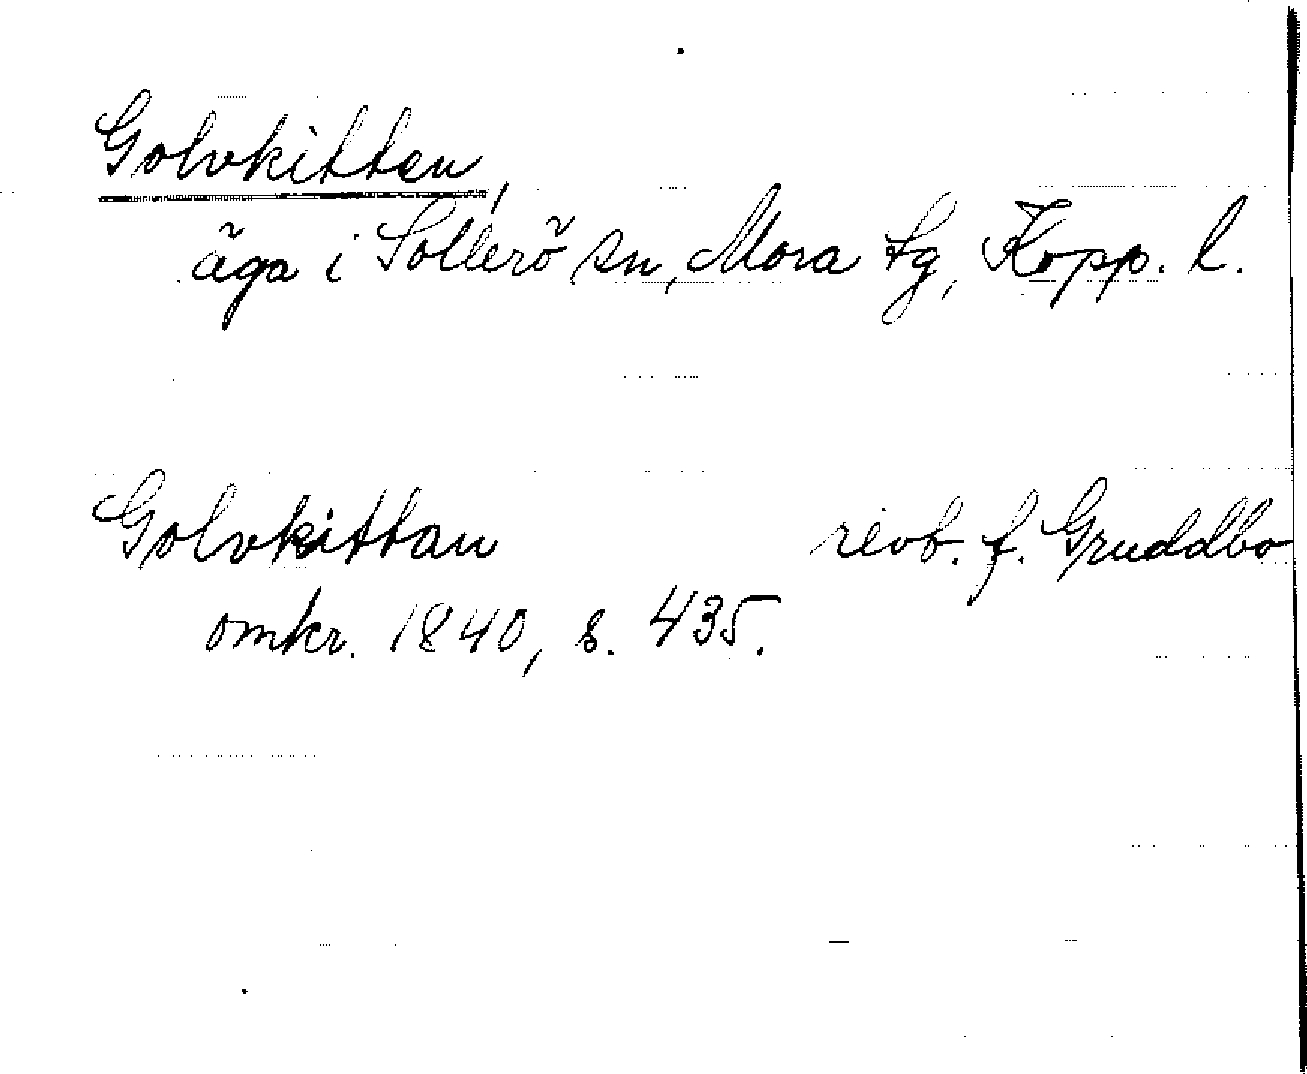 Golvkitten,
äga i Sollerö sn, Mora tg, Kopp. l.
Golvkittan revb. f. Gruddbo
omkr. 1840, s. 435.